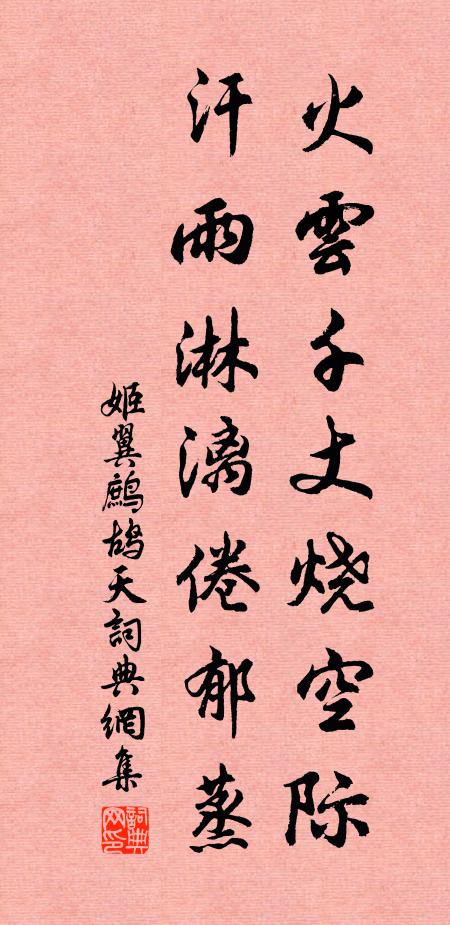 火雲千丈烧空际
汗雨淋漓倦郁蒸
姬翼鷓鸪天詞典網集
詞典网印